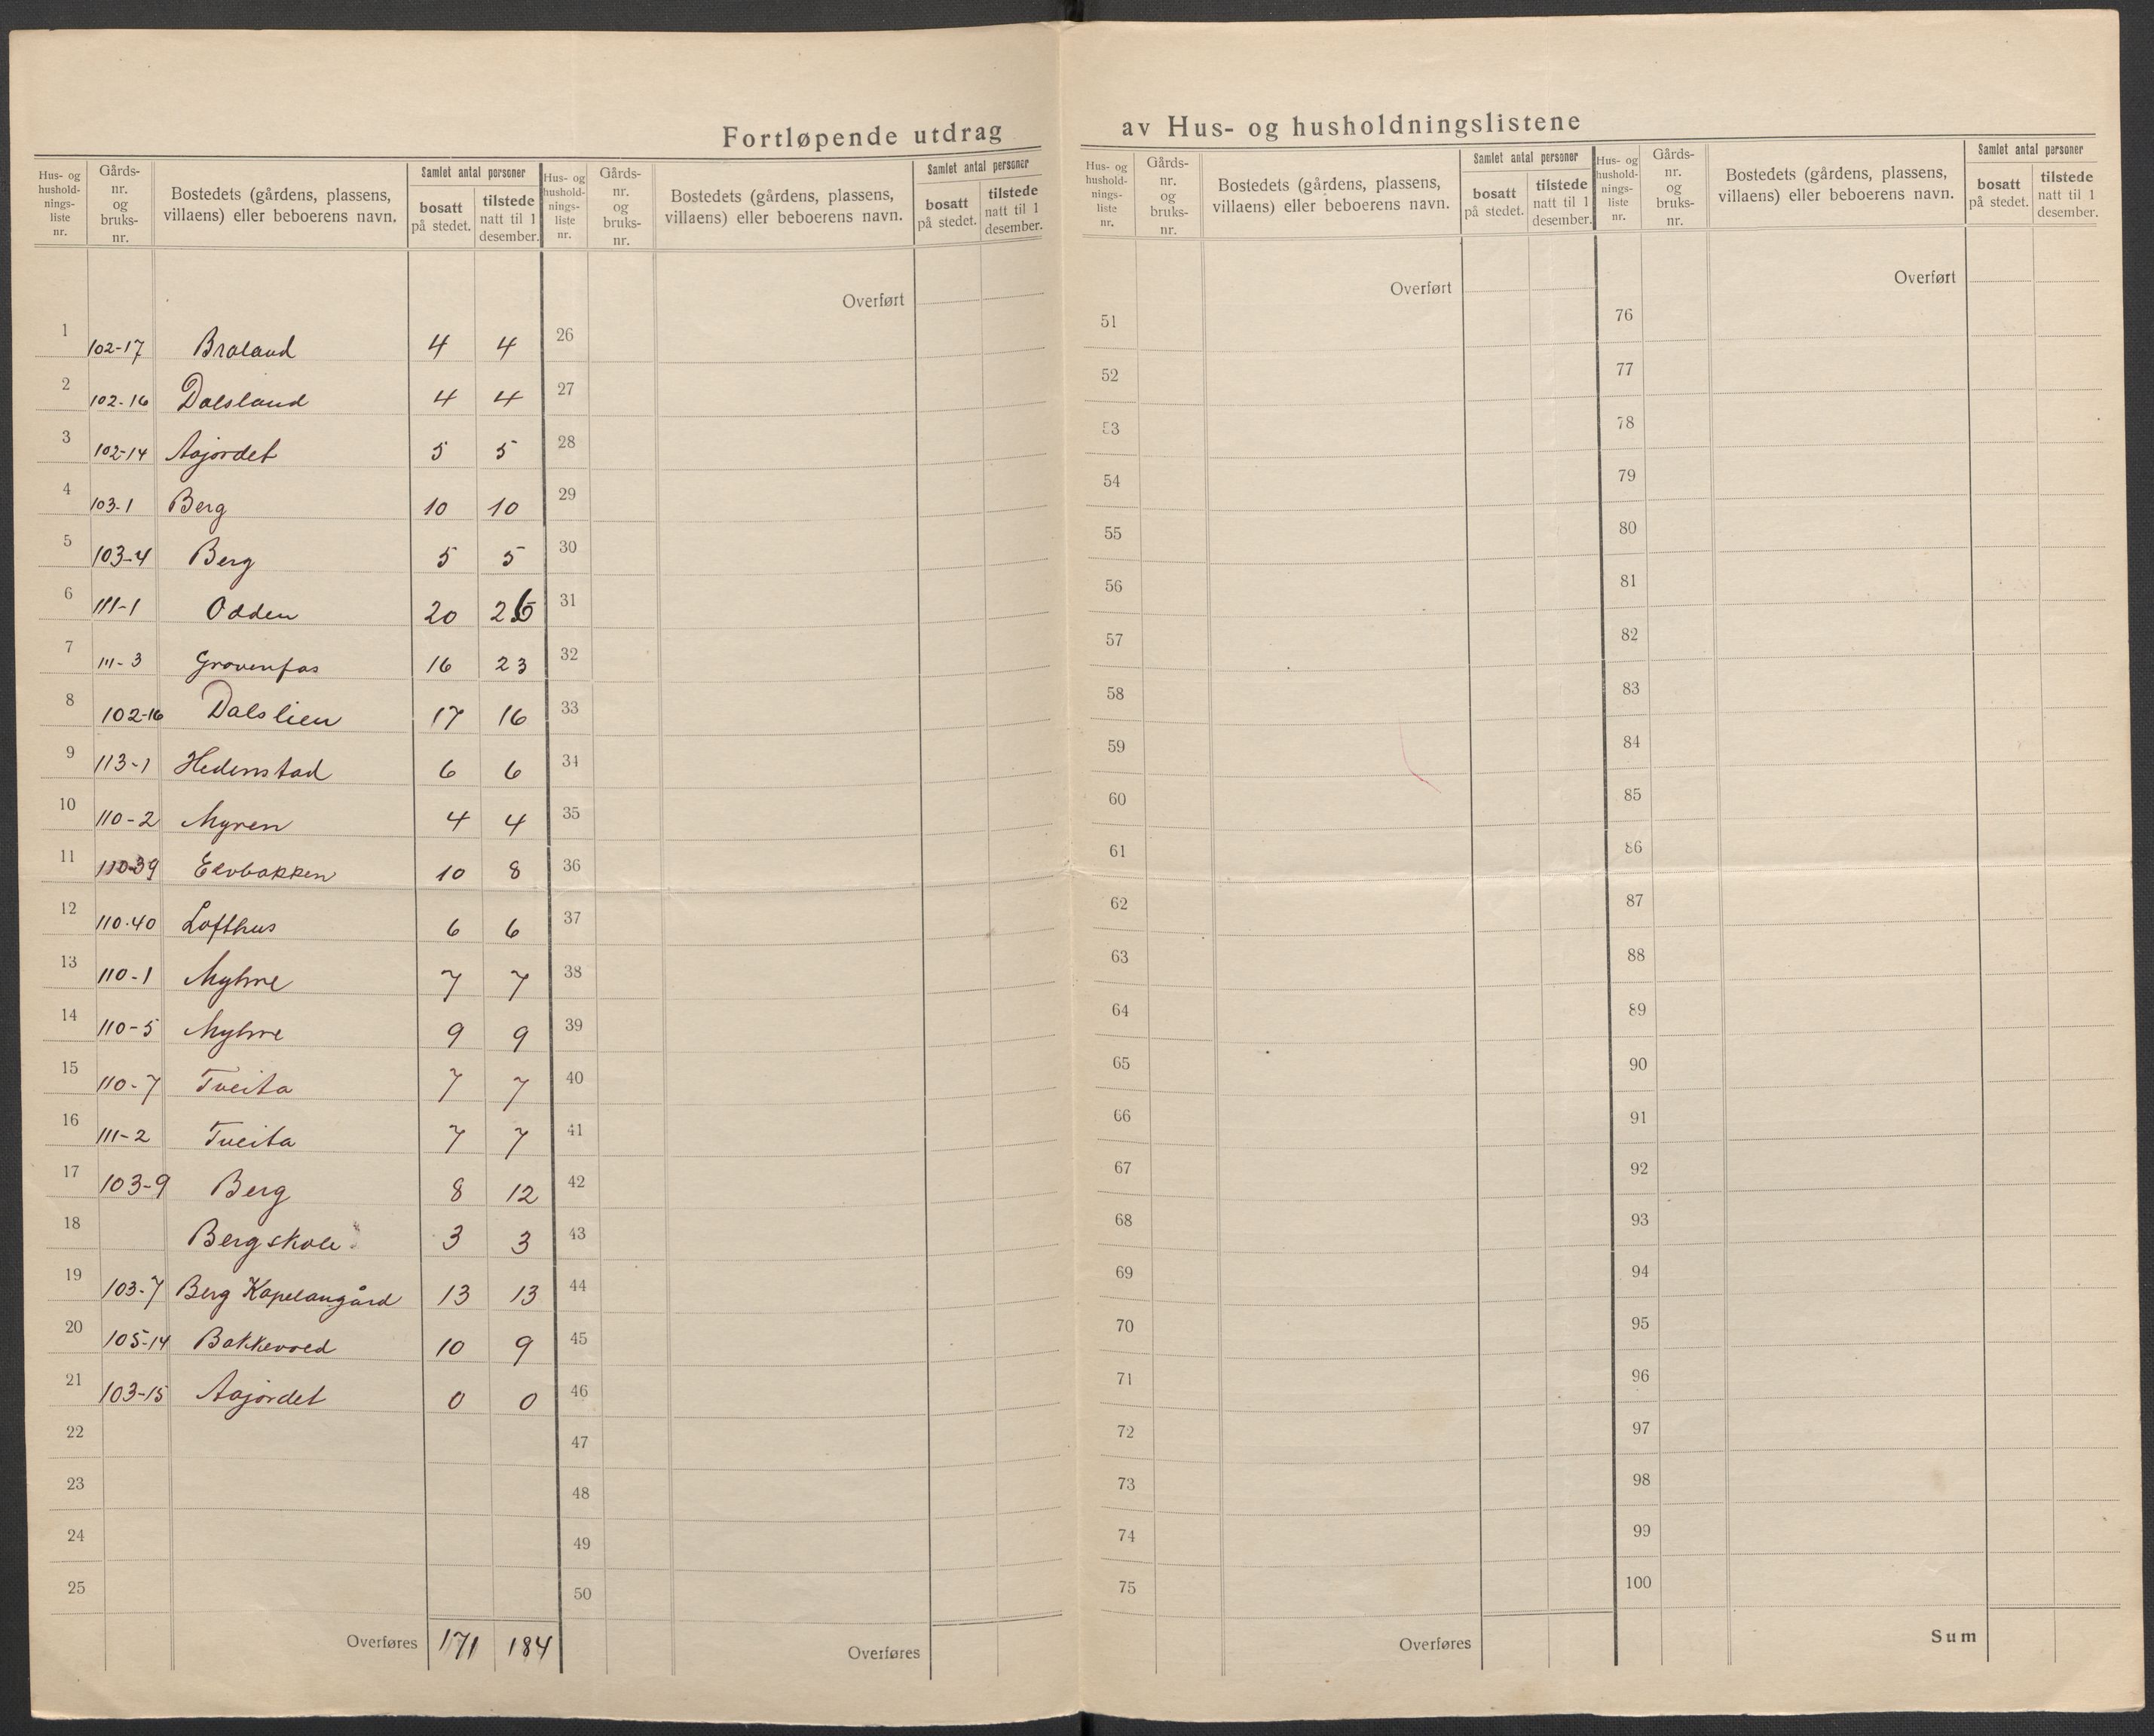 Fortløpende utdrag av Hus- og husholdningslistene
Hus- og hushold-nings-liste nr. Gårds-nr. og bruks-nr. Bostedets (gårdens, plassens, villaens) eller beboerens navn. Samlet antal personer bosatt på stedet. tilstede natt til 1 desember.
1 102-17 Braland 4 4
2 102-16 Dalsland 4 4
3 102-14 Aajordet 5 5
4 103-1 Berg 10 10
5 103-4 Berg 5 5
6 111-1 Odden 20 26
7 111-3 Grovenfas 16 23
8 102-16 Dalslien 17 16
9 113-1 Hedenstad 6 6
10 110-2 Myren 4 4
11 110-39 Elvbakken 10 8
12 110-40 Lofthus 6 6
13 110-1 Myhre 7 7
14 110-5 Myhre 9 9
15 110-7 Tveita 7 7
16 111-2 Tveita 7 7
17 103-9 Berg 8 12
18 Berg skole 3 3
19 103-7 Berg Kapelangård 13 13
20 105-14 Bakkevold 10 9
21 103-15 Aajordet 0 0
22
23
24
25
Overføres 171 184
Hus- og hushold-nings-liste nr. Gårds-nr. og bruks-nr. Bostedets (gårdens, plassens, villaens) eller beboerens navn. Samlet antal personer bosatt på stedet. tilstede natt til 1 desember.
Overført
26
27
28
29
30
31
32
33
34
35
36
37
38
39
40
41
42
43
44
45
46
47
48
49
50
Overføres
Hus- og hushold-nings-liste nr. Gårds-nr. og bruks-nr. Bostedets (gårdens, plassens, villaens) eller beboerens navn. Samlet antal personer bosatt på stedet. tilstede natt til 1 desember.
Overført
51
52
53
54
55
56
57
58
59
60
61
62
63
64
65
66
67
68
69
70
71
72
73
74
75
Overføres
Hus- og hushold-nings-liste nr. Gårds-nr. og bruks-nr. Bostedets (gårdens, plassens, villaens) eller beboerens navn. Samlet antal personer bosatt på stedet. tilstede natt til 1 desember.
Overført
76
77
78
79
80
81
82
83
84
85
86
87
88
89
90
91
92
93
94
95
96
97
98
99
100
Sum